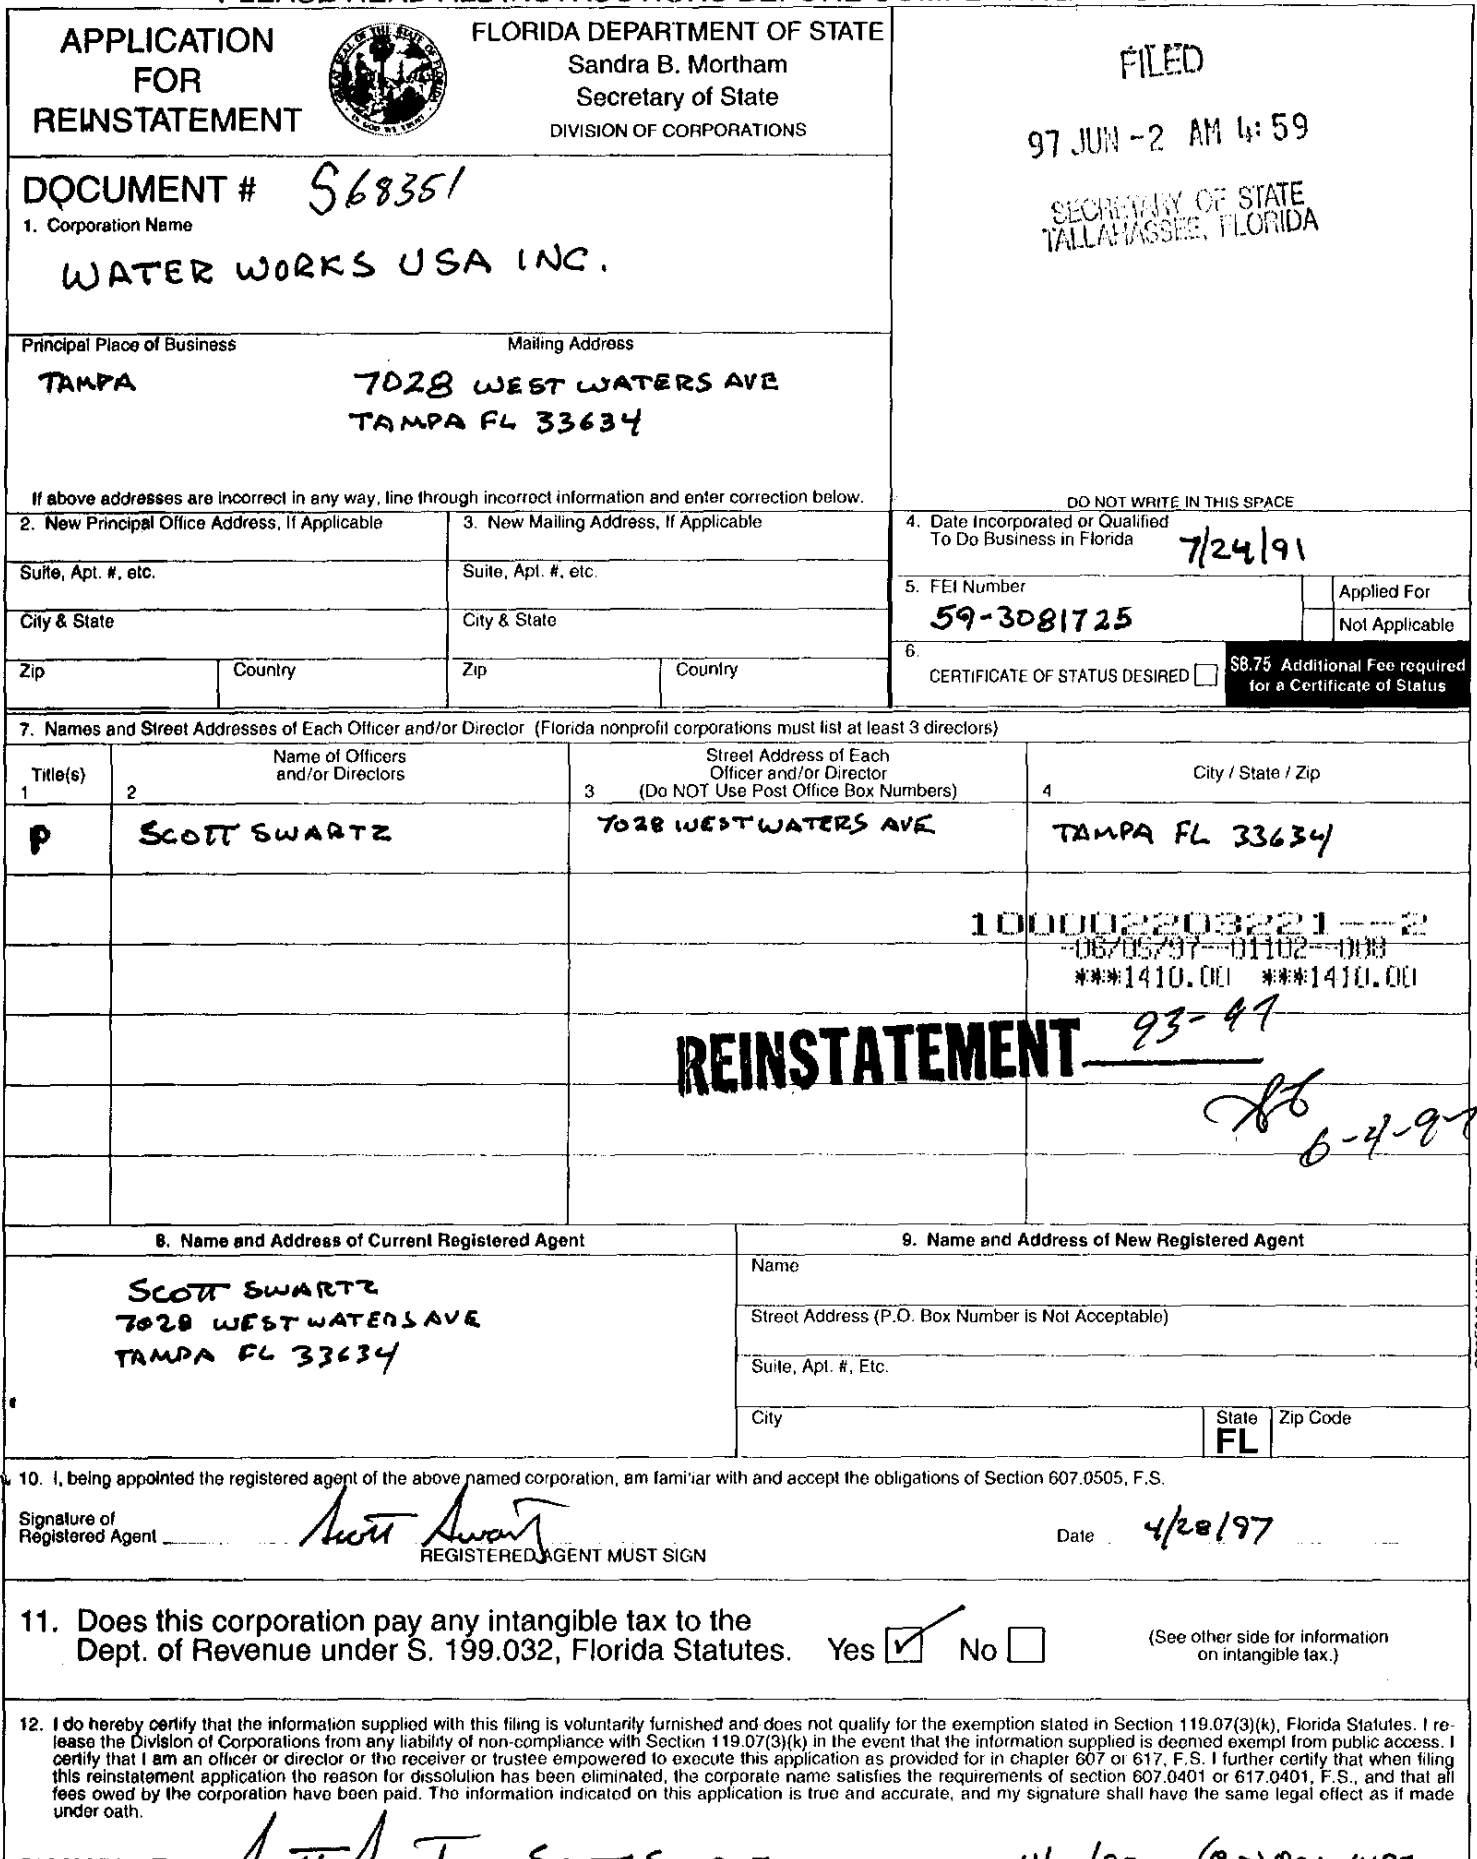 APPLICATION
FOR
REINSTATEMENT
FLORIDA DEPARTMENT OF STATE
Sandra B. Mortham
Secretary of State
DIVISION OF CORPORATIONS
FILED
97 JUN -2 AM 4:59
SECRETARY OF STATE
TALLAHASSEE, FLORIDA
DOCUMENT # S68351
1. Corporation Name
WATER WORKS USA INC.
Principal Place of Business Mailing Address
TAMPA 7028 WEST WATERS AVE
TAMPA FL 33634
If above addresses are incorrect in any way, line through incorrect information and enter correction below.
DO NOT WRITE IN THIS SPACE
2. New Principal Office Address, If Applicable
3. New Mailing Address, If Applicable
4. Date Incorporated or Qualified
To Do Business in Florida 7/24/91
Suite, Apt. #, etc.
Suite, Apt. #, etc.
5. FEI Number
59-3081725
Applied For
Not Applicable
City & State
City & State
Zip Country
Zip Country
6.
CERTIFICATE OF STATUS DESIRED
$8.75 Additional Fee required
for a Certificate of Status
7. Names and Street Addresses of Each Officer and/or Director (Florida nonprofit corporations must list at least 3 directors)
Title(s)
1
Name of Officers
and/or Directors
2
Street Address of Each
Officer and/or Director
3 (Do NOT Use Post Office Box Numbers)
City / State / Zip
4
P SCOTT SWARTZ 7028 WEST WATERS AVE TAMPA FL 33634
100002203221--2
-06/05/97--01102--008
***1410.00 ***1410.00
REINSTATEMENT 93-97
6-4-97
8. Name and Address of Current Registered Agent
SCOTT SWARTZ
7028 WEST WATERS AVE
TAMPA FL 33634
9. Name and Address of New Registered Agent
Name
Street Address (P.O. Box Number is Not Acceptable)
Suite, Apt. #, Etc.
City State FL Zip Code
10. I, being appointed the registered agent of the above named corporation, am familiar with and accept the obligations of Section 607.0505, F.S.
Signature of
Registered Agent Scott Swartz
REGISTERED AGENT MUST SIGN
Date 4/28/97
11. Does this corporation pay any intangible tax to the
Dept. of Revenue under S. 199.032, Florida Statutes. Yes No
(See other side for information
on intangible tax.)
12. I do hereby certify that the information supplied with this filing is voluntarily furnished and does not qualify for the exemption stated in Section 119.07(3)(k), Florida Statutes. I re-
lease the Division of Corporations from any liability of non-compliance with Section 119.07(3)(k) in the event that the information supplied is deemed exempt from public access. I
certify that I am an officer or director or the receiver or trustee empowered to execute this application as provided for in chapter 607 or 617, F.S. I further certify that when filing
this reinstatement application the reason for dissolution has been eliminated, the corporate name satisfies the requirements of section 607.0401 or 617.0401, F.S., and that all
fees owed by the corporation have been paid. The information indicated on this application is true and accurate, and my signature shall have the same legal effect as if made
under oath.